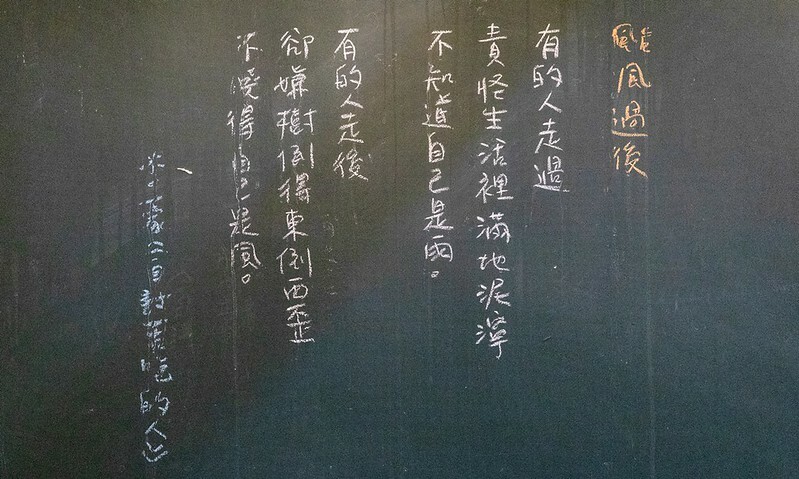 颱風過後
有的人走過
責怪生活裡滿地泥濘
不知道自己是雨。
有的人走後
卻嫌樹倒得東倒西歪
不曉得自己是風。
《自討苦吃的人》